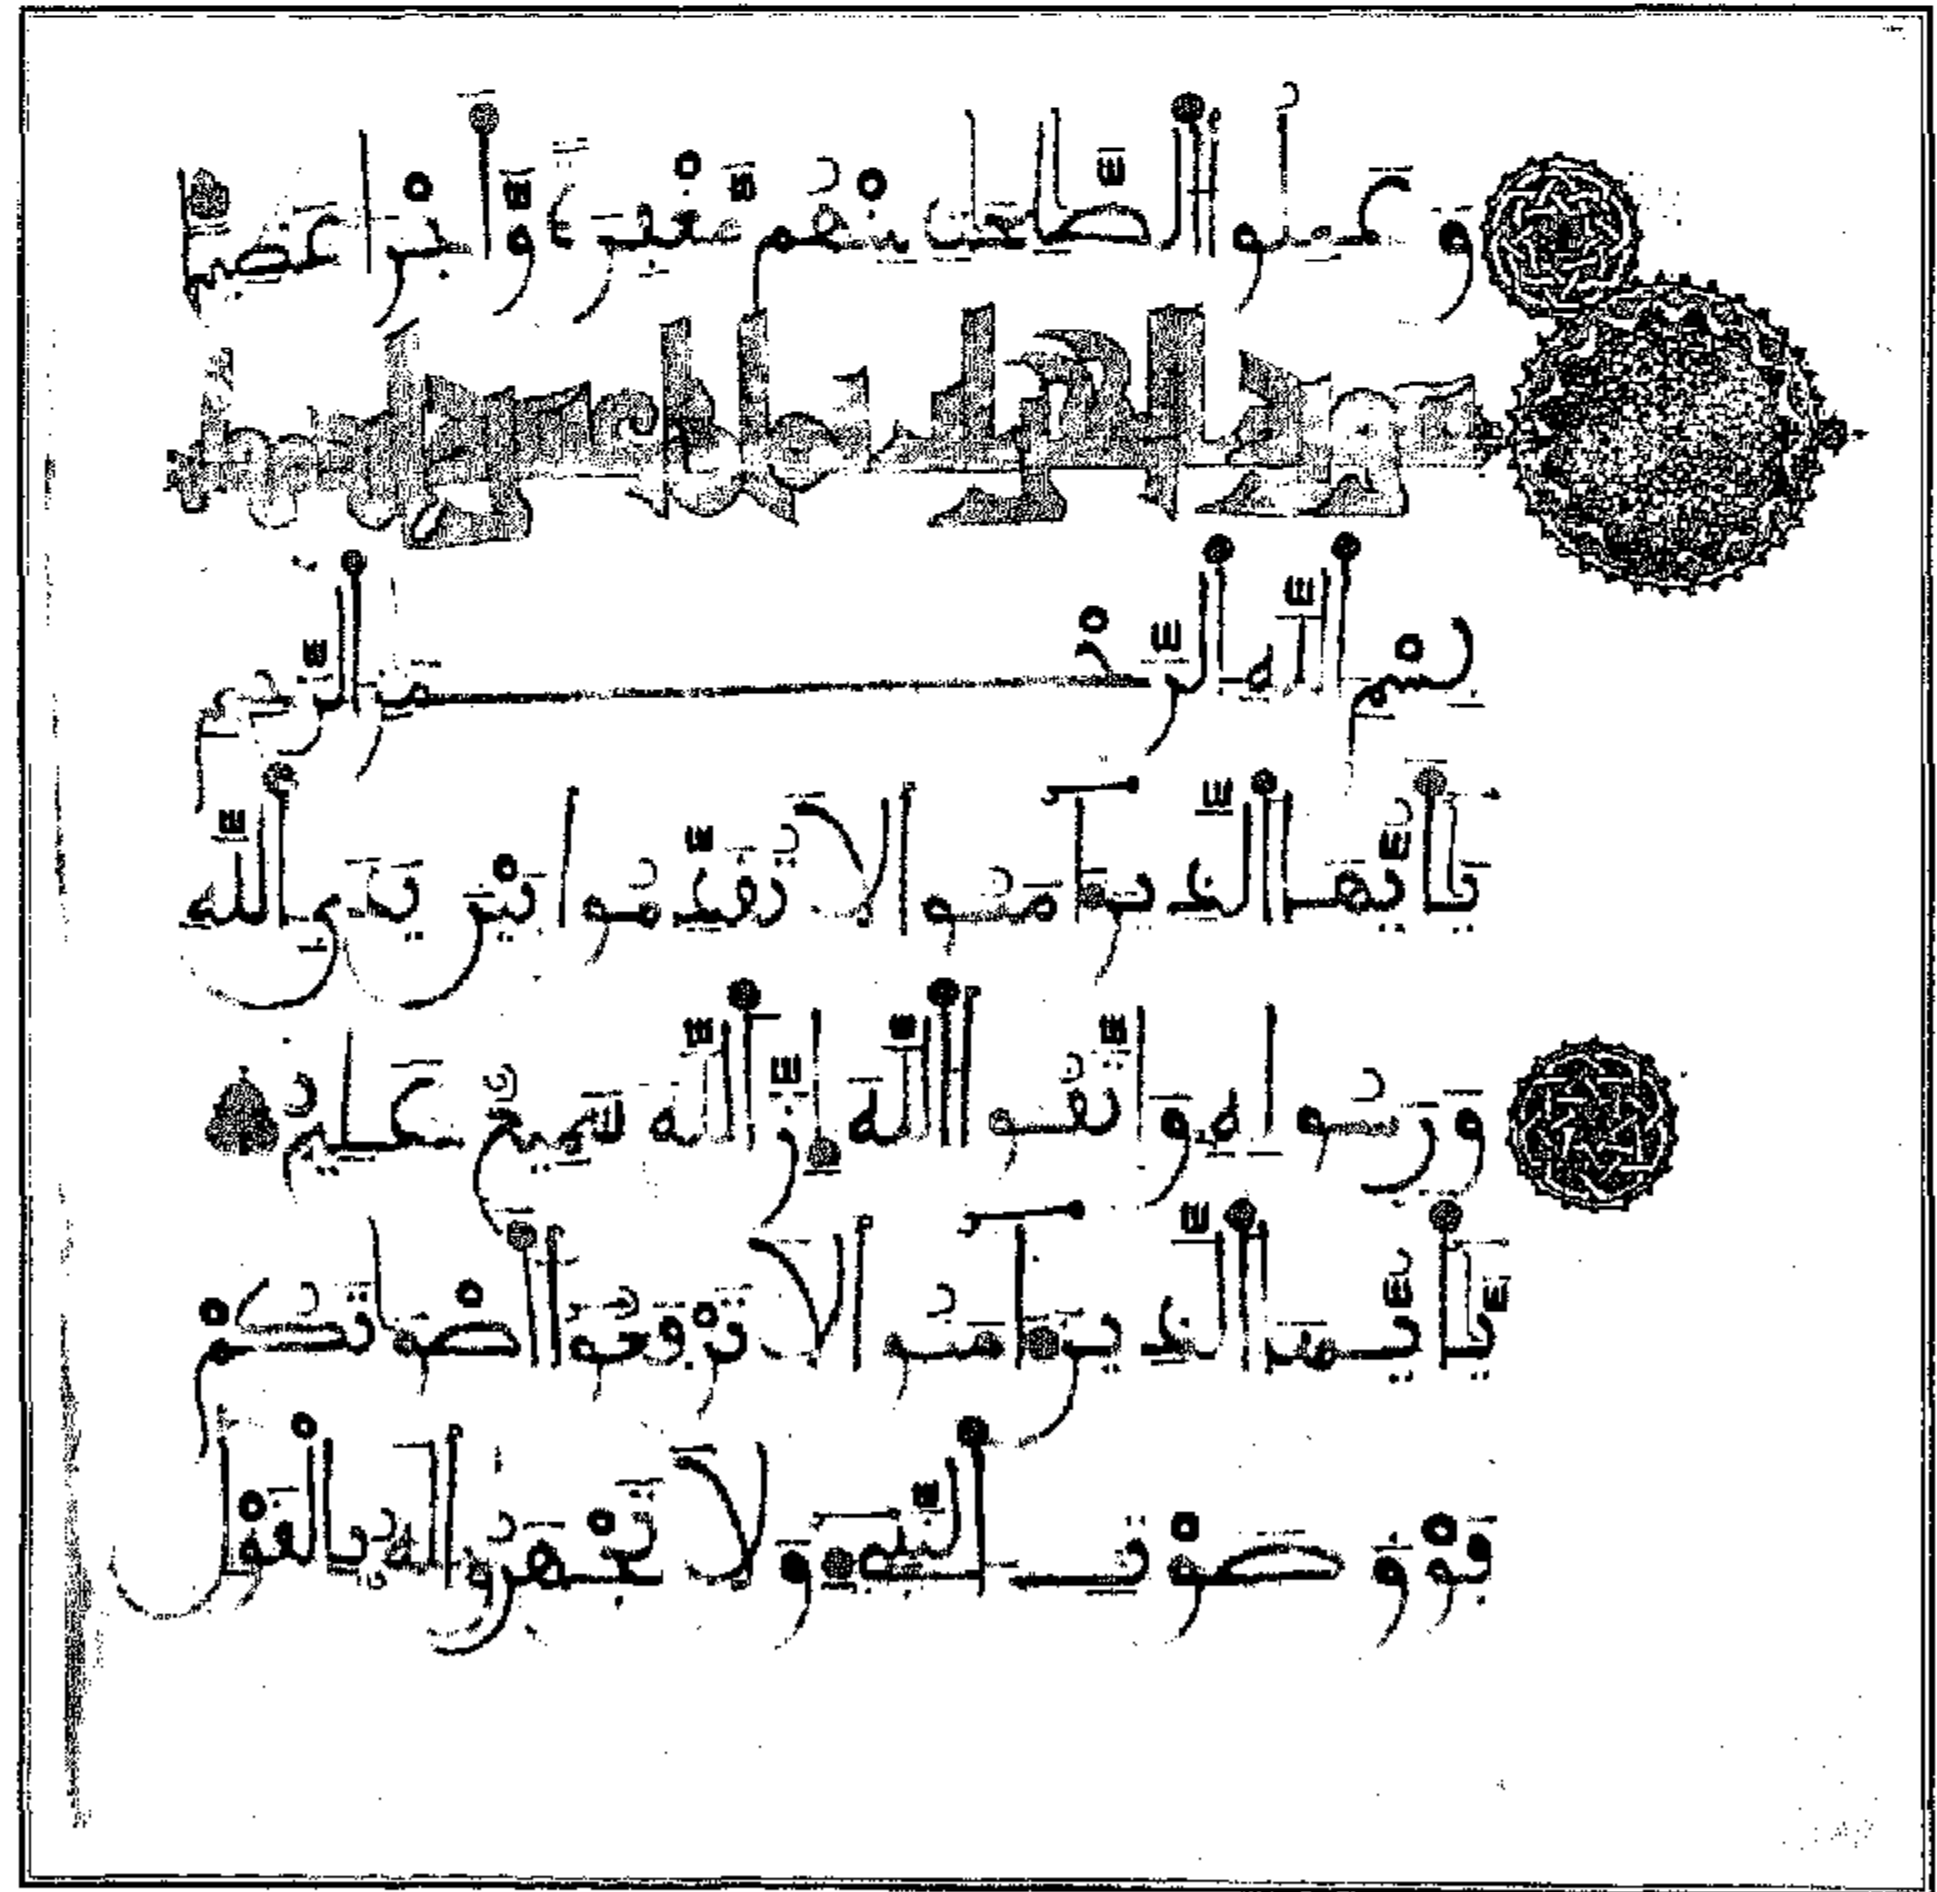 وعملوا الصلحت منهم مغفرة وأجرا عظيما
سورة الحجرات
بسم الله الرحمن الرحيم
يأيها الذين ءامنوا لا تقدموا بين يدي الله
ورسوله واتقوا الله إن الله سميع عليم
يأيها الذين ءامنوا لا ترفعوا أصواتكم
فوق صوت النبيء ولا تجهروا له بالقول